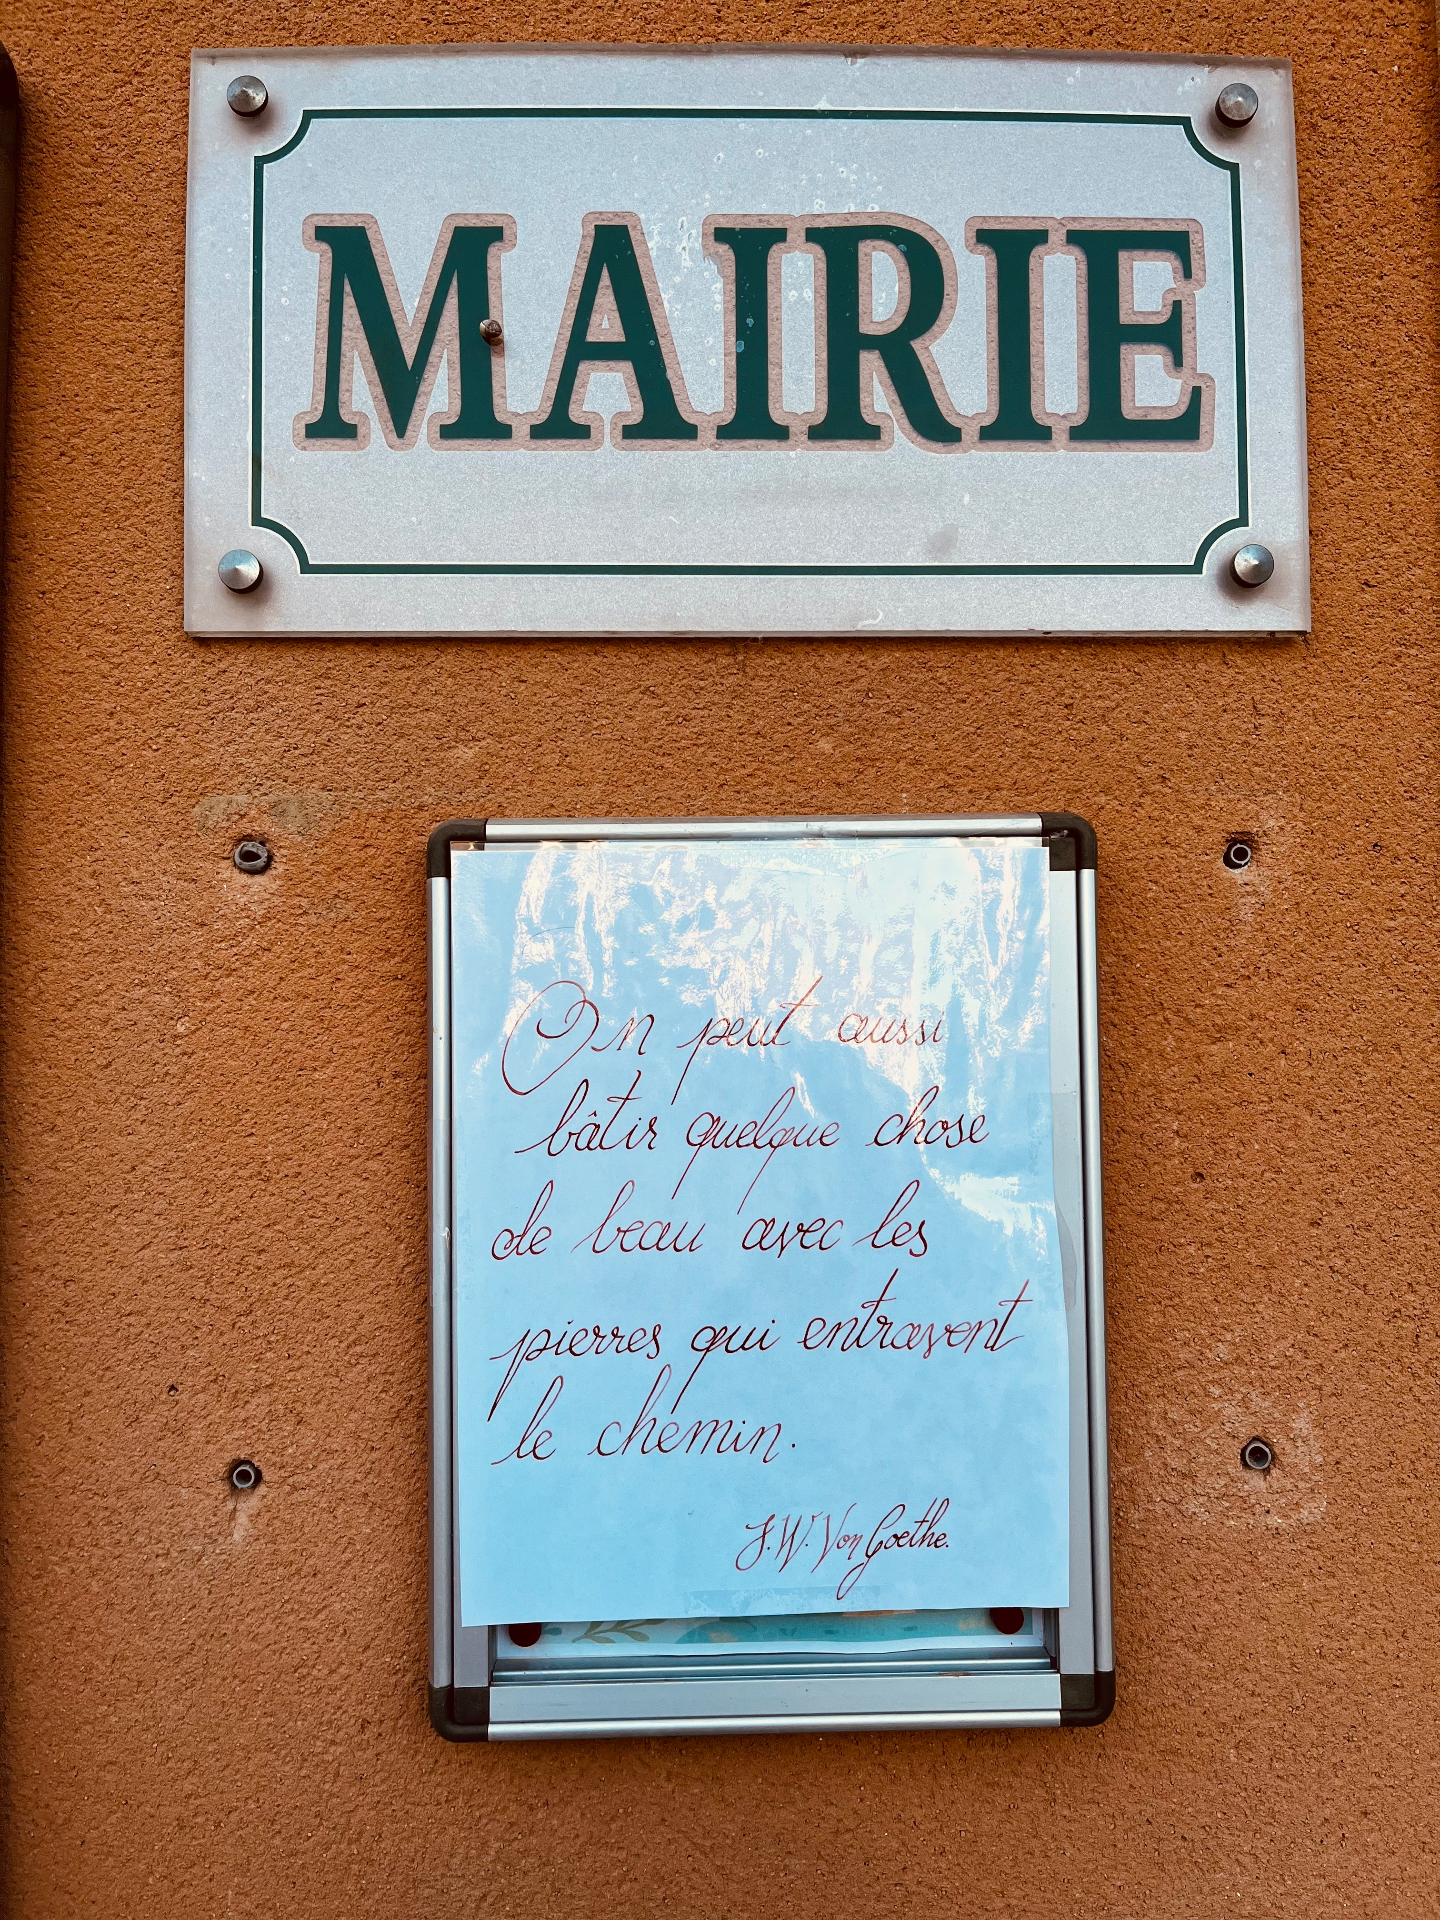 MAIRIE
On peut aussi
bâtir quelque chose
de beau avec les
pierres qui entravent
le chemin.
J.W. Von Goethe.